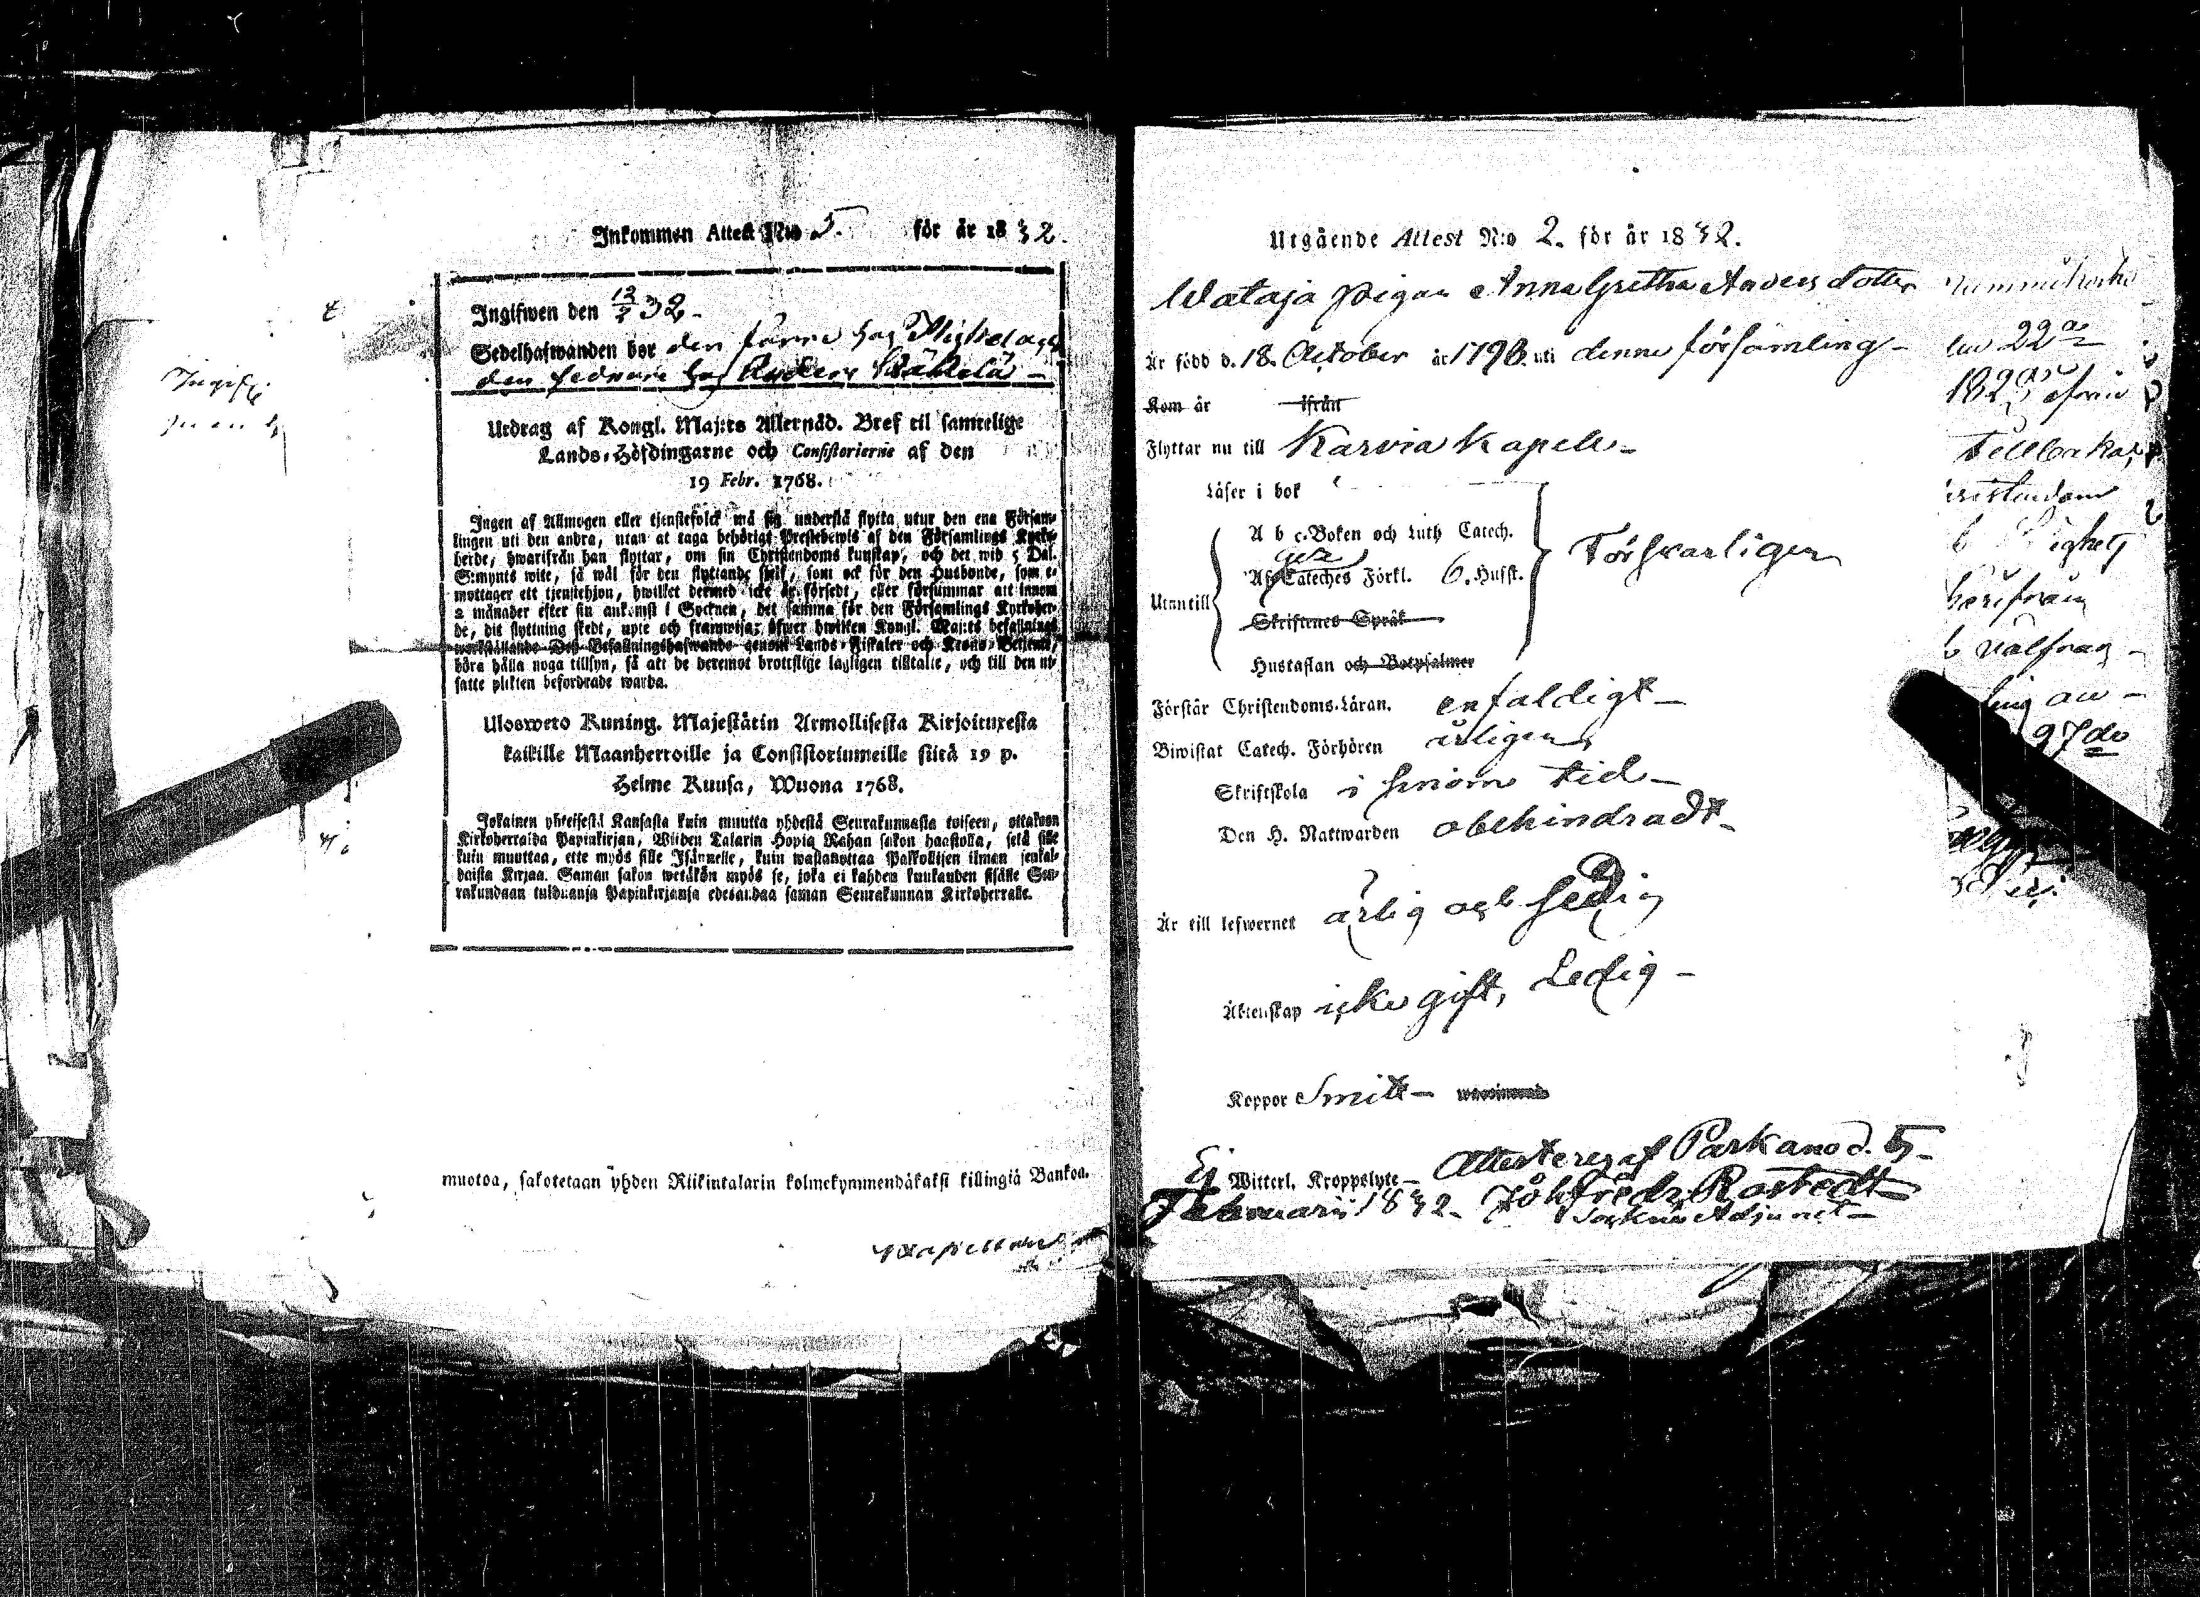 Inkommen Attest N:o 5. för år 1832.
Ingifwen den 12/2 32.
Sedelhafwanden bor den förre hos
den sednare hos Anders
Utdrag af Kongl. Maj:ts Allernåd. Bref til samtelige
Lands-Höfdingarne och Consistorierne af den
19 Febr. 1768.
Ingen af Allmogen eller tjenstefolck må sig understå flytta utur den ena Försam-
lingen uti den andra, utan at taga behörigt Prestebewis af den Församlings Kyrko-
herde, hwarifrån han flyttar, om sin Christendoms kunskap, och det wid 5 Dal.
S:mynts wite, så wäl för den flyttande sjelf, som ock för den Husbonde, som e-
mottager ett tjenstehjon, hwilket dermed icke är försedt, eller försummar att innom
2 månader efter sin ankomst i Socknen, det samma för den Församlings Kyrkoher-
de, dit flyttning skedt, upte och framwisa; öfwer hwilken Kongl. Maj:ts befallnings
werkställande Deß Befallningshafwande genom Lands-Fiskaler och Krono-Betjente,
böra hålla noga tillsyn, så att de deremot brottslige lagligen tilltalte, och till den ut-
satte plikten befordrade warda.
Ulosweto Kuning. Majestätin Armollisesta Kirjoituxesta
kaikille Maanherroille ja Consistoriumeille siitä 19 p.
Helme Kuusa, Wuona 1768.
Jokainen yhteisestä Kansasta kuin muutta yhdestä Seurakunnasta toiseen, ottakoon
Kirkoherralda Papinkirjan, Wiiden Talarin Hopia Rahan sakon haastolla, sekä sille
kuin muuttaa, ette myös sille Isännelle, kuin wastanottaa Palkollisen ilman senkal-
daista Kirjaa. Saman sakon wetäkön myös se, joka ei kahden kuukauden sisälle Seu-
rakundaan tulduansa Papinkirjansa edesandaa saman Seurakunnan Kirkoherralle.
muotoa, sakotetaan yhden Riikintalarin kolmekymmendäkaksi killingiä Bankoa.
Utgående Attest N:o 2. för år 1832.
Wataja pigan Anna Gretha Anders dotter
Är född d. 18. October år 1798. uti denne församling -
Kom år ifrån
Flyttar nu till Karvia Kapell -
Läser i bok
A b c-Boken och Luth Catech.
Af Cateches Förkl. 6. Husst.
Försvarligen
Utantill
Skriftenes Språk
Hustaflan och Botpsalmer
Förstår Christendoms-Läran. enfaldigt -
Biwistat Catech. Förhören årligen
Skriftskola i sinom tid -
Den H. Nattwarden obehindradt -
Är till lefwernet ärlig och sedig
Äktenskap icke gift, Ledig -
Koppor Smitt -
Ej Witterl. Kroppslyte - Attesteras af Parkano d. 5 -
Februarii 1832. Joh Fredr Rostedt
Sockne Adjunct -
22
tillbaka
97 do